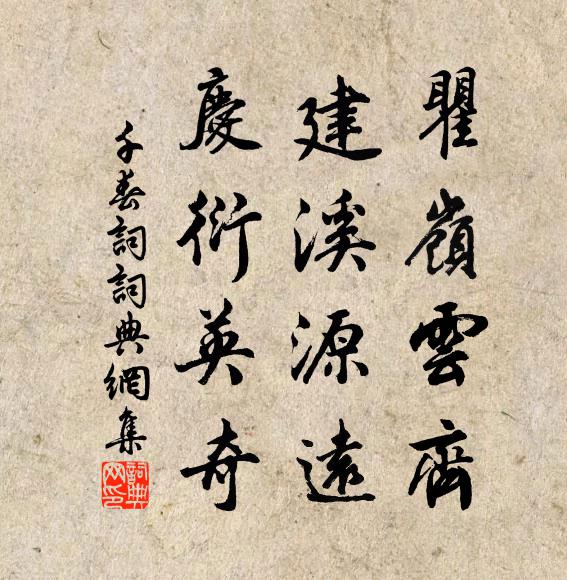 瞿嶺雲齊
建溪源遠
慶衍英奇
千春詞詞典網集
詞典网印